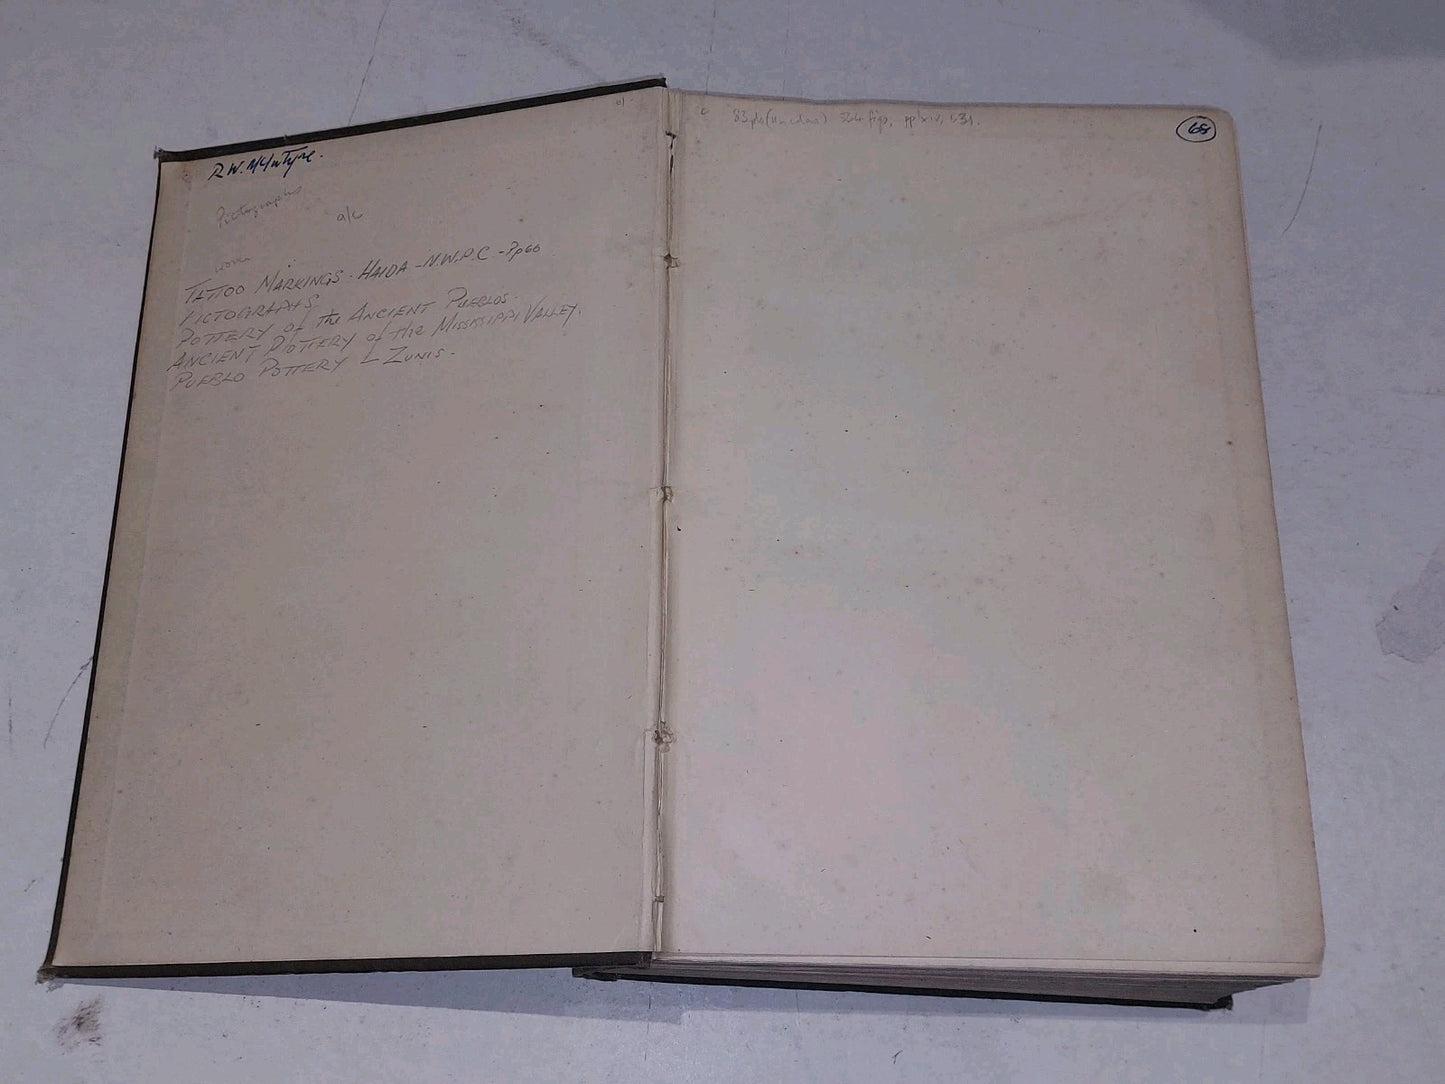 R.W. McIntyre.
Pictographs
a/c
TATTOO MARKINGS - HAIDA - N.W.P.C - Pp66
PICTOGRAPHS
POTTERY of the ANCIENT PUEBLOS.
ANCIENT POTTERY of the MISSISSIPPI VALLEY.
PUEBLO POTTERY ZUNIS.
83 pls figs, pp lxiv, 532.
68